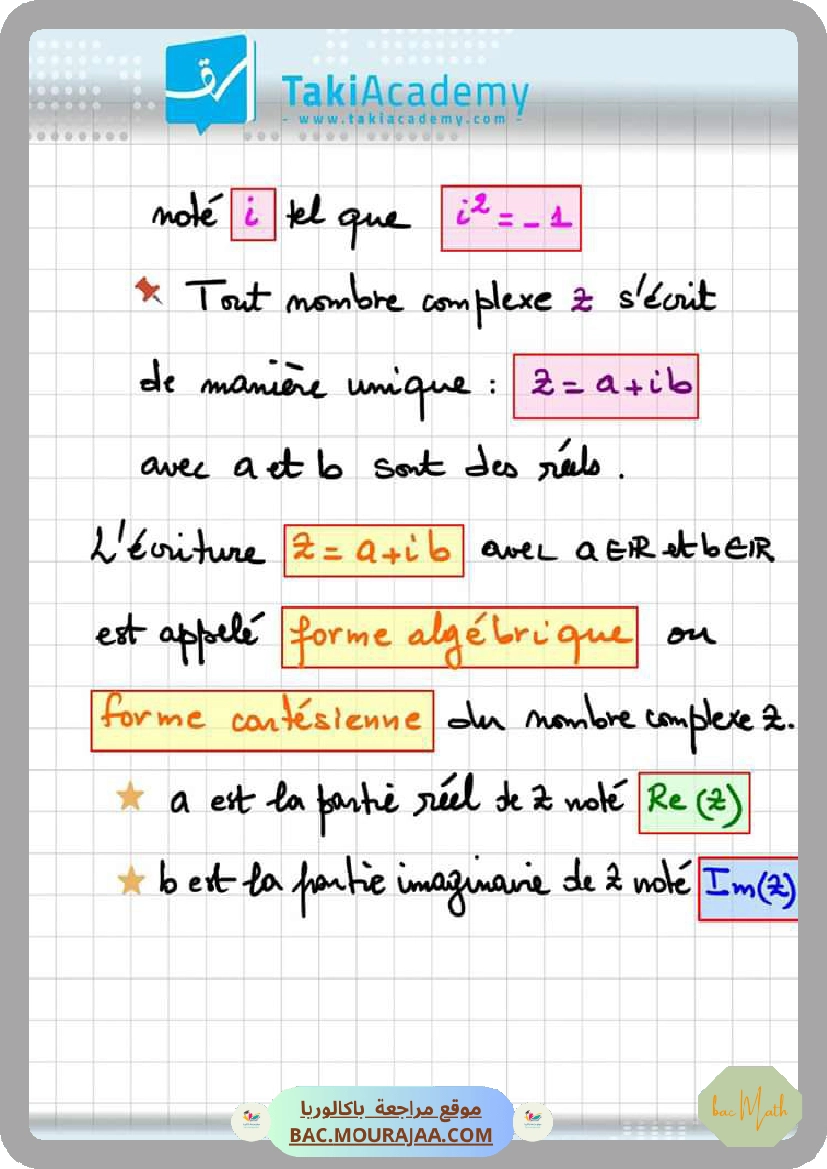 TakiAcademy
- www.takiacademy.com -
noté i tel que i² = -1
Tout nombre complexe z s'écrit
de manière unique : z = a+ib
avec a et b sont des réels .
L'écriture z = a+ib avec a∈IR et b∈IR
est appelé forme algébrique ou
forme cartésienne du nombre complexe z.
a est la partie réel de z noté Re(z)
b est la partie imaginaire de z noté Im(z)
موقع مراجعة باكالوريا
BAC.MOURAJAA.COM
bac Math